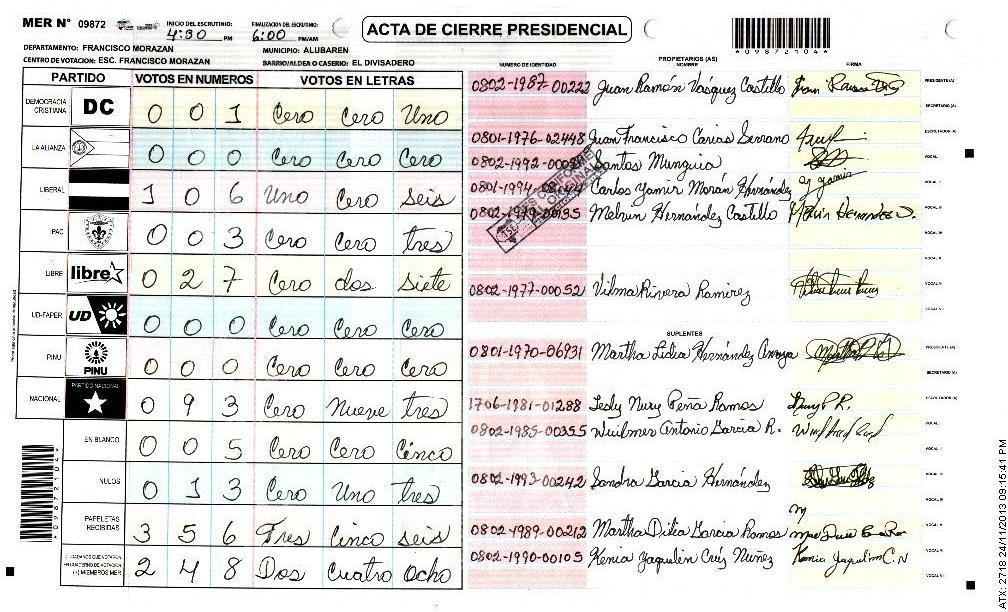 MER N° 09872
INICIO DEL ESCRUTINIO: 4:30 PM
FINALIZACION DEL ESCRUTINIO: 6:00 PM/AM
ACTA DE CIERRE PRESIDENCIAL
*098721041*
DEPARTAMENTO: FRANCISCO MORAZAN
MUNICIPIO: ALUBAREN
CENTRO DE VOTACION: ESC. FRANCISCO MORAZAN
BARRIO/ALDEA O CASERIO: EL DIVISADERO
PARTIDO VOTOS EN NUMEROS VOTOS EN LETRAS
DEMOCRACIA CRISTIANA DC 0 0 1 Cero Cero Uno
LA ALIANZA 0 0 0 Cero Cero Cero
LIBERAL 1 0 6 Uno Cero seis
PAC 0 0 3 Cero Cero tres
LIBRE libre 0 2 7 Cero dos siete
UD-FAPER UD 0 0 0 Cero Cero Cero
PINU PINU 0 0 0 Cero Cero Cero
NACIONAL PARTIDO NACIONAL 0 9 3 Cero Nueve tres
EN BLANCO 0 0 5 Cero Cero Cinco
NULOS 0 1 3 Cero Uno tres
PAPELETAS RECIBIDAS 3 5 6 Tres Cinco seis
CIUDADANOS QUE VOTARON EN CUADERNO DE VOTACION (+) MIEMBROS MER 2 4 8 Dos Cuatro Ocho
PROPIETARIOS (AS)
NUMERO DE IDENTIDAD NOMBRE FIRMA
0802-1987-00222 Juan Ramón Vásquez Castillo PRESIDENTE(A)
SECRETARIO (A)
0801-1976-02448 Juan Francisco Carias Serrano ESCRUTADOR (A)
0802-1992- Santos Munguia VOCAL I
0801-1994- Carlos Yamir Morán Hernández VOCAL II
Melvin Hernández Castillo Melvin Hernandez VOCAL III
VOCAL IV
VOCAL V
0802-1977-00052 Vilma Rivera Ramirez VOCAL VI
VOCAL VII
SUPLENTES
0801-1970-06931 Martha Lidia Hernández Amaya PRESIDENTE (A)
SECRETARIO (A)
1706-1981-01288 Lesly Nury Peña Ramos ESCRUTADOR (A)
0802-1985-00355 Wuilmer Antonio Garcia R. VOCAL I
VOCAL II
0802-1993-00242 Sandra Garcia Hernández VOCAL III
VOCAL IV
0802-1989-00212 Martha Dilia Garcia Ramos VOCAL V
0802-1990-00105 Kenia Jaquelin Cruz Nuñez Kenia Jaquelin C.N VOCAL VI
VOCAL VII
*098721041*
ATX: 2718 24/11/2013 09:15:41 PM